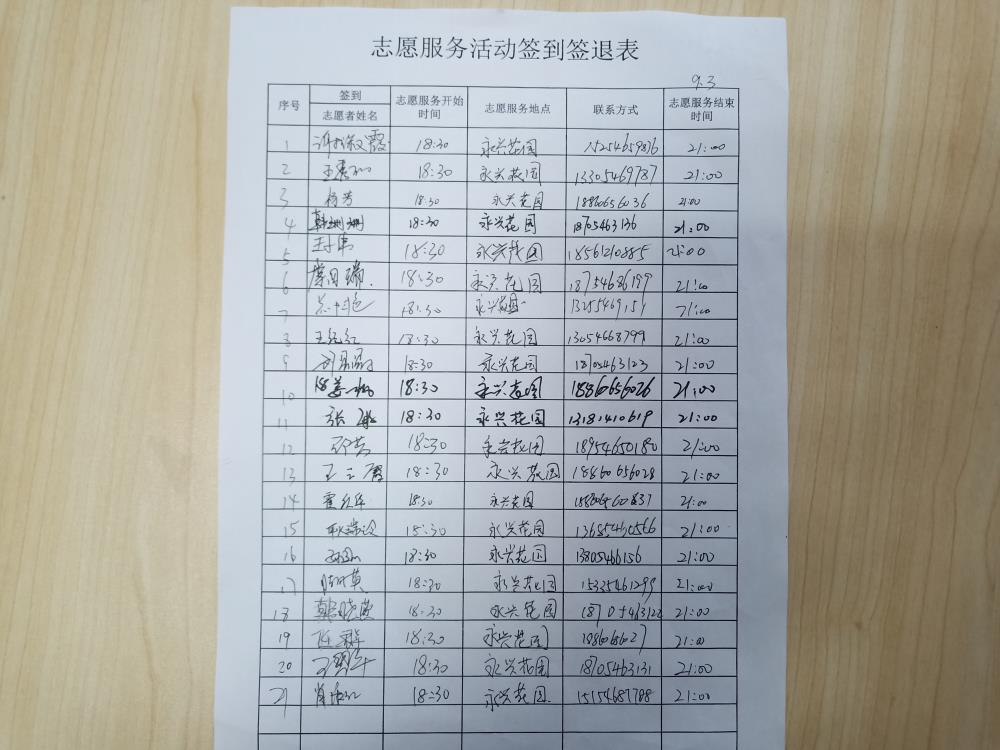 志愿服务活动签到签退表
9.3
序号 签到 志愿者姓名 志愿服务开始时间 志愿服务地点 联系方式 志愿服务结束时间
1 18:30 永兴花园 15254659876 21:00
2 18:30 永兴花园 13305469787 21:00
3 杨芳 18:30 永兴花园 18860656036 21:00
4 韩姗姗 18:30 永兴花园 18705463136 21:00
5 18:30 永兴花园 18561210885 21:00
6 18:30 永兴花园 18754686199 21:00
7 18:30 永兴花园 13255469151 21:00
8 王纪红 18:30 永兴花园 13054668799 21:00
9 18:30 永兴花园 18705463123 21:00
10 18:30 永兴花园 18860656026 21:00
11 张 18:30 永兴花园 13181410619 21:00
12 18:30 永兴花园 18954650180 21:00
13 王三霞 18:30 永兴花园 18860656028 21:00
14 霍红军 18:30 永兴花园 21:00
15 永兴花园 13685460566 21:00
16 18:30 永兴花园 13805466156 21:00
17 18:30 永兴花园 15335461299 21:00
18 韩晓燕 18:30 永兴花园 18705463122 21:00
19 18:30 永兴花园 21:00
20 18:30 永兴花园 18705463131 21:00
21 18:30 永兴花园 15154687788 21:00